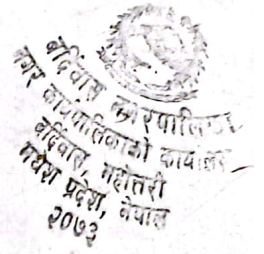 बर्दिवास नगरपालिका
नगर कार्यपालिकाको कार्यालय
बर्दिवास, महोत्तरी
मधेश प्रदेश, नेपाल
२०७३